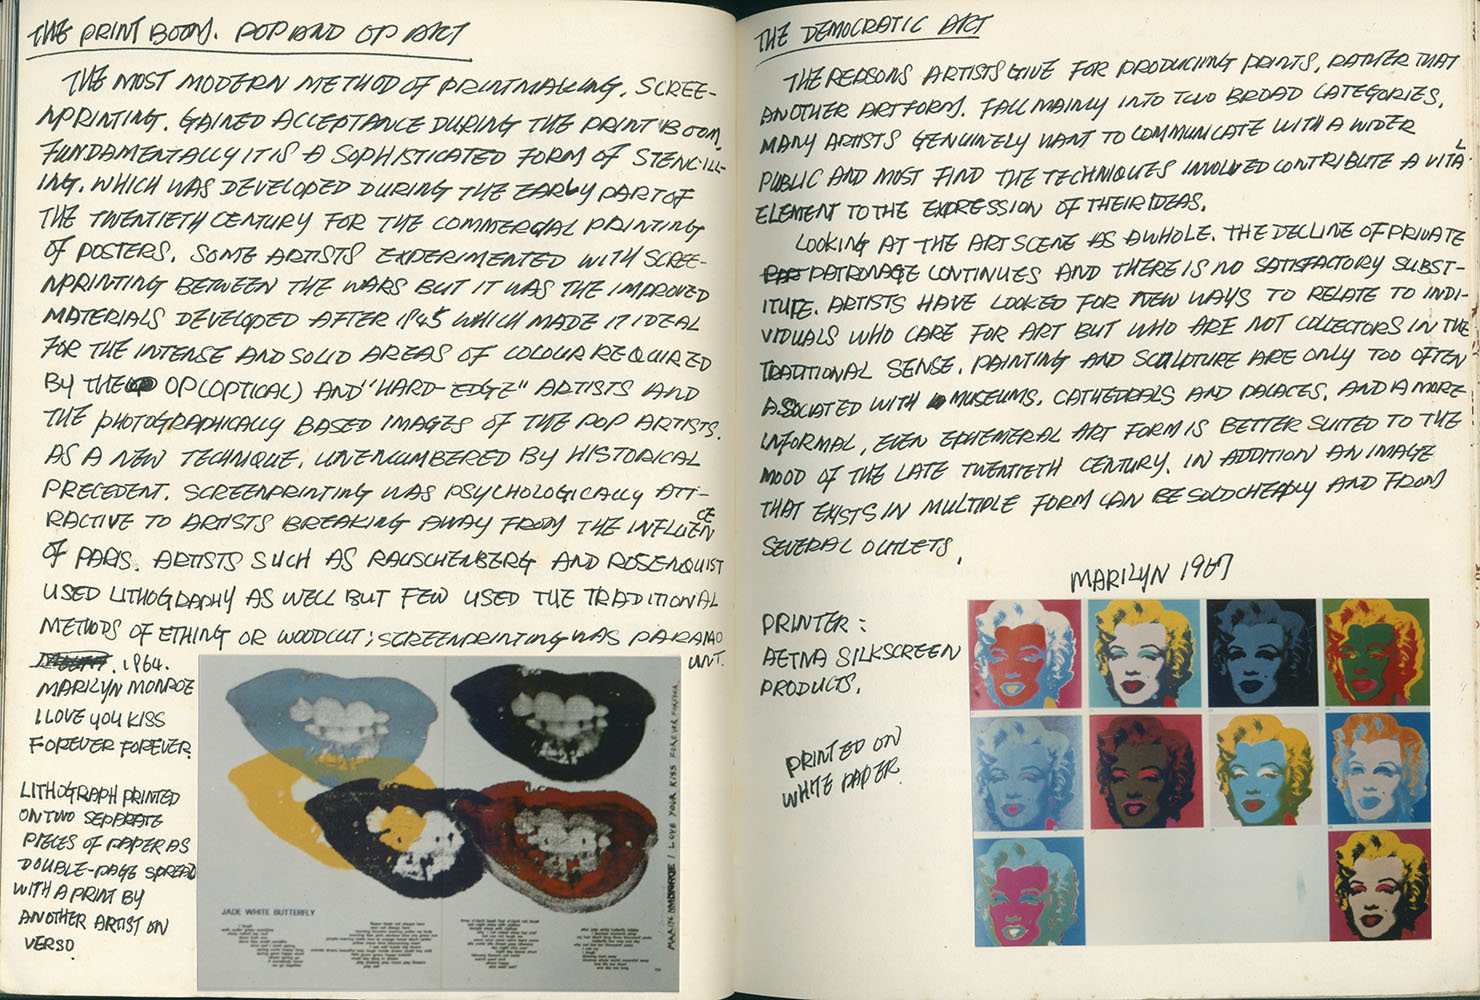 THE PRINT BOOM. POP AND OP ART
THE MOST MODERN METHOD OF PRINTMAKING, SCREE-
NPRINTING. GAINED ACCEPTANCE DURING THE PRINT BOOM.
FUNDAMENTALLY IT IS A SOPHISTICATED FORM OF STENCILL-
ING. WHICH WAS DEVELOPED DURING THE EARLY PART OF
THE TWENTIETH CENTURY FOR THE COMMERCIAL PRINTING
OF POSTERS. SOME ARTISTS EXPERIMENTED WITH SCREE-
NPRINTING BETWEEN THE WARS BUT IT WAS THE IMPROVED
MATERIALS DEVELOPED AFTER 1945 WHICH MADE IT IDEAL
FOR THE INTENSE AND SOLID AREAS OF COLOUR REQUIRED
BY THE OP (OPTICAL) AND "HARD-EDGE" ARTISTS AND
THE PHOTOGRAPHICALLY BASED IMAGES OF THE POP ARTISTS.
AS A NEW TECHNIQUE. UNENCUMBERED BY HISTORICAL
PRECEDENT. SCREENPRINTING WAS PSYCHOLOGICALLY ATT-
RACTIVE TO ARTISTS BREAKING AWAY FROM THE INFLUENCE
OF PARIS. ARTISTS SUCH AS RAUSCHENBERG AND ROSENQUIST
USED LITHOGRAPHY AS WELL BUT FEW USED THE TRADITIONAL
METHODS OF ETHING OR WOODCUT; SCREENPRINTING WAS PARAMO
UNT.
1964.
MARILYN MONROE
I LOVE YOU KISS
FOREVER FOREVER.
LITHOGRAPH PRINTED
ON TWO SEPERATE
PIECES OF PAPER AS
DOUBLE-PAGE SPREAD
WITH A PRINT BY
ANOTHER ARTIST ON
VERSO.
MARILYN MONROE / I LOVE YOUR KISS FOREVER FOREVER
JADE WHITE BUTTERFLY
THE DEMOCRATIC ART
THE REASONS ARTISTS GIVE FOR PRODUCING PRINTS, RATHER THAT
ANOTHER ART FORM. FALL MAINLY INTO TWO BROAD CATEGORIES.
MANY ARTISTS GENUINELY WANT TO COMMUNICATE WITH A WIDER
PUBLIC AND MOST FIND THE TECHNIQUES INVOLVED CONTRIBUTE A VITAL
ELEMENT TO THE EXPRESSION OF THEIR IDEAS.
LOOKING AT THE ART SCENE AS A WHOLE. THE DECLINE OF PRIVATE
PATRONAGE CONTINUES AND THERE IS NO SATISFACTORY SUBST-
ITUTE. ARTISTS HAVE LOOKED FOR NEW WAYS TO RELATE TO INDI-
VIDUALS WHO CARE FOR ART BUT WHO ARE NOT COLLECTORS IN THE
TRADITIONAL SENSE. PAINTING AND SCULPTURE ARE ONLY TOO OFTEN
ASOCIATED WITH MUSEUMS. CATHEDRALS AND PALACES. AND A MORE
INFORMAL, EVEN EPHEMERAL ART FORM IS BETTER SUITED TO THE
MOOD OF THE LATE TWENTIETH CENTURY. IN ADDITION AN IMAGE
THAT EXISTS IN MULTIPLE FORM CAN BE SOLD CHEAPLY AND FROM
SEVERAL OUTLETS.
MARILYN 1967
PRINTER:
AETNA SILKSCREEN
PRODUCTS.
PRINTED ON
WHITE PAPER.